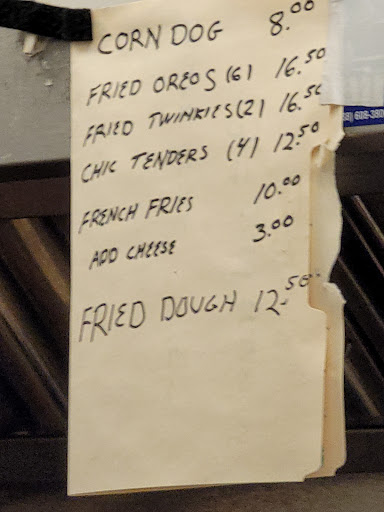 CORN DOG 8.00
FRIED OREOS (6) 16.50
FRIED TWINKIES (2) 16.50
CHIC TENDERS (4) 12.50
FRENCH FRIES 10.00
ADD CHEESE 3.00
FRIED DOUGH 12.50